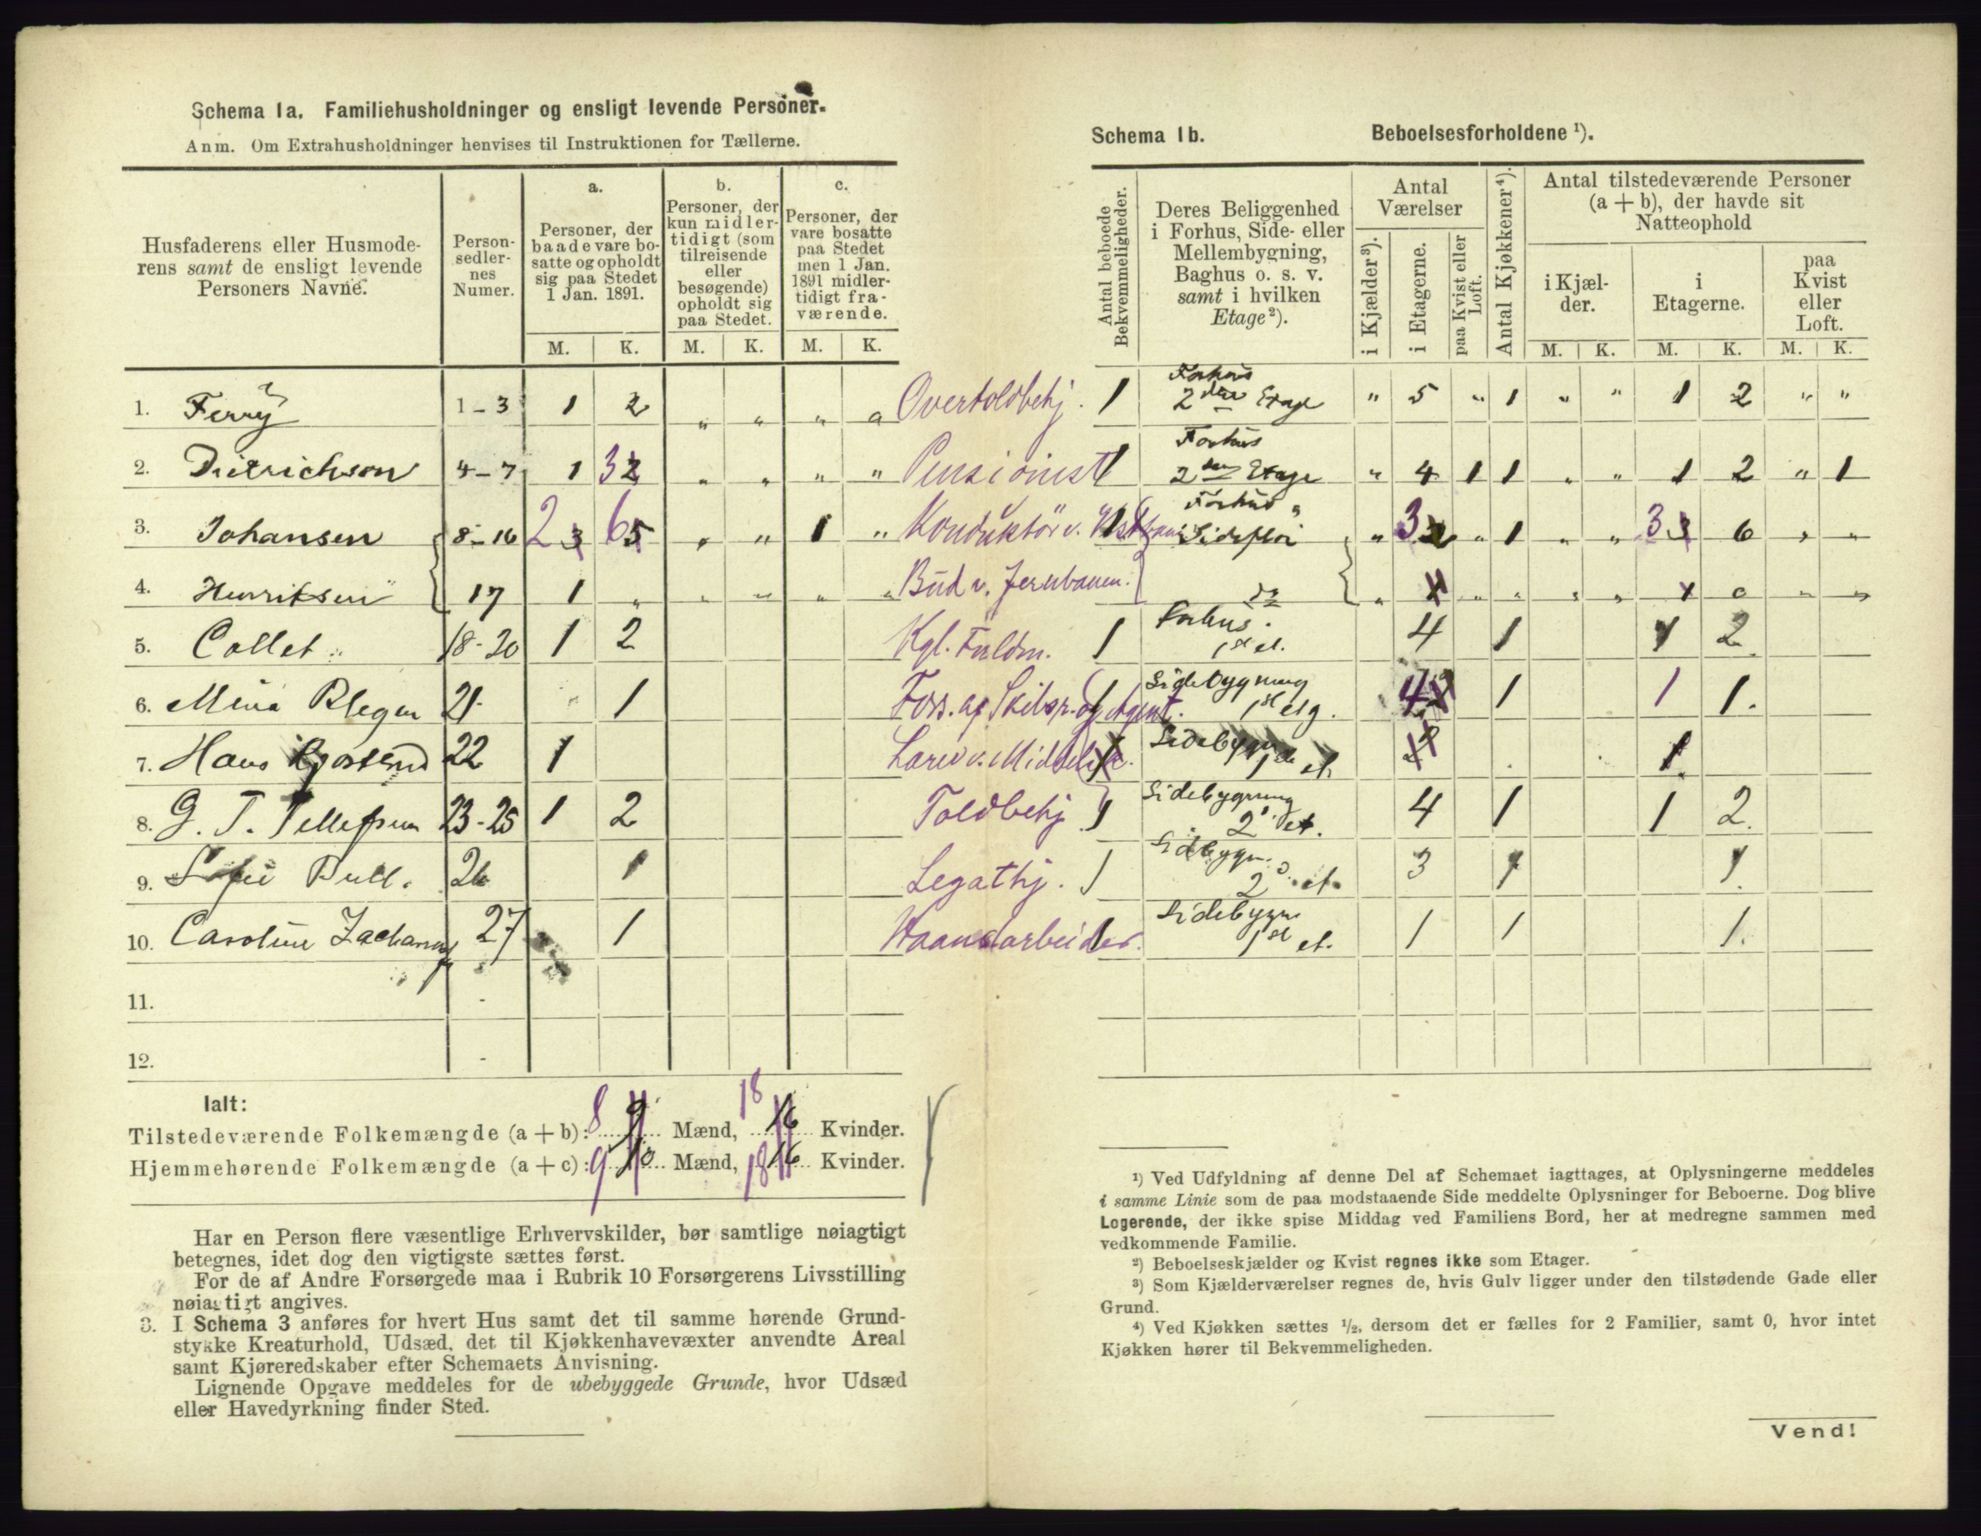 Schema 1a. Familiehusholdninger og ensligt levende Personer.
Anm. Om Extrahusholdninger henvises til Instruktionen for Tællerne.
Husfaderens eller Husmoderens samt de ensligt levende Personers Navne.
Personsedlernes Numer.
a. Personer, der baade vare bosatte og opholdt sig paa Stedet 1 Jan. 1891.
b. Personer, der kun midlertidigt (som tilreisende eller besøgende) opholdt sig paa Stedet.
c. Personer, der vare bosatte paa Stedet men 1 Jan. 1891 midlertidigt fraværende.
M. K. M. K. M. K.
1. Ferry 1-3 1 2 " " " " Overtoldbetj.
2. Dietrichson 4-7 1 3 2 " " " " Pensionist
3. Johansen 8-16 2 3 6 5 " " 1 " Konduktör v.
4. Henriksen 17 1 " " " " " Bud v. Jernbanen.
5. Collet 18-20 1 2 Kgl. Fuldm.
6. Mina Blegen 21 1 Fors. af Skibsr. og Agent.
7. Hans 22 1
8. G. T. Tellefsen 23-25 1 2 Toldbetj
9. Sofie Bull. 26 1 Legathj.
10. Caroline 27 1 Haandarbeider.
11. -
12. -
Ialt:
Tilstedeværende Folkemængde (a + b): 8 9 Mænd, 18 16 Kvinder.
Hjemmehørende Folkemængde (a + c): 9 10 Mænd, 18 16 Kvinder.
Har en Person flere væsentlige Erhvervskilder, bør samtlige nøiagtigt
betegnes, idet dog den vigtigste sættes først.
For de af Andre Forsørgede maa i Rubrik 10 Forsørgerens Livsstilling
nøiagtigt angives.
3. I Schema 3 anføres for hvert Hus samt det til samme hørende Grund-
stykke Kreaturhold, Udsæd, det til Kjøkkenhavevæxter anvendte Areal
samt Kjøreredskaber efter Schemaets Anvisning.
Lignende Opgave meddeles for de ubebyggede Grunde, hvor Udsæd
eller Havedyrkning finder Sted.
Schema 1b. Beboelsesforholdene 1).
Antal beboede Bekvemmeligheder.
Deres Beliggenhed i Forhus, Side- eller Mellembygning, Baghus o. s. v. samt i hvilken Etage 2).
Antal Værelser
i Kjælder 3). i Etagerne. paa Kvist eller Loft.
Antal Kjøkkener 4).
Antal tilstedeværende Personer (a + b), der havde sit Natteophold
i Kjælder. i Etagerne. paa Kvist eller Loft.
M. K. M. K. M. K.
1 Forhus 2den Etage " 5 " 1 " " 1 2 " "
1 Forhus 2den Etage " 4 1 1 " " 1 2 " 1
1 Forhus " 3 2 " 1 " " 3 3 6 " "
do
1 Forhus. 1st et. 4 1 1 2
1 Sidebygning 1st etg. 4 1 1 1.
Sidebygn 1ste et. 1
1 Sidebygning 2 et. 4 1 1 2.
1 Sidebygn. 2 et. 3 1 1
1 Sidebygn 1st et. 1 1 1.
1) Ved Udfyldning af denne Del af Schemaet iagttages, at Oplysningerne meddeles
i samme Linie som de paa modstaaende Side meddelte Oplysninger for Beboerne. Dog blive
Logerende, der ikke spise Middag ved Familiens Bord, her at medregne sammen med
vedkommende Familie.
2) Beboelseskjælder og Kvist regnes ikke som Etager.
3) Som Kjælderværelser regnes de, hvis Gulv ligger under den tilstødende Gade eller
Grund.
4) Ved Kjøkken sættes 1/2, dersom det er fælles for 2 Familier, samt 0, hvor intet
Kjøkken hører til Bekvemmeligheden.
Vend!